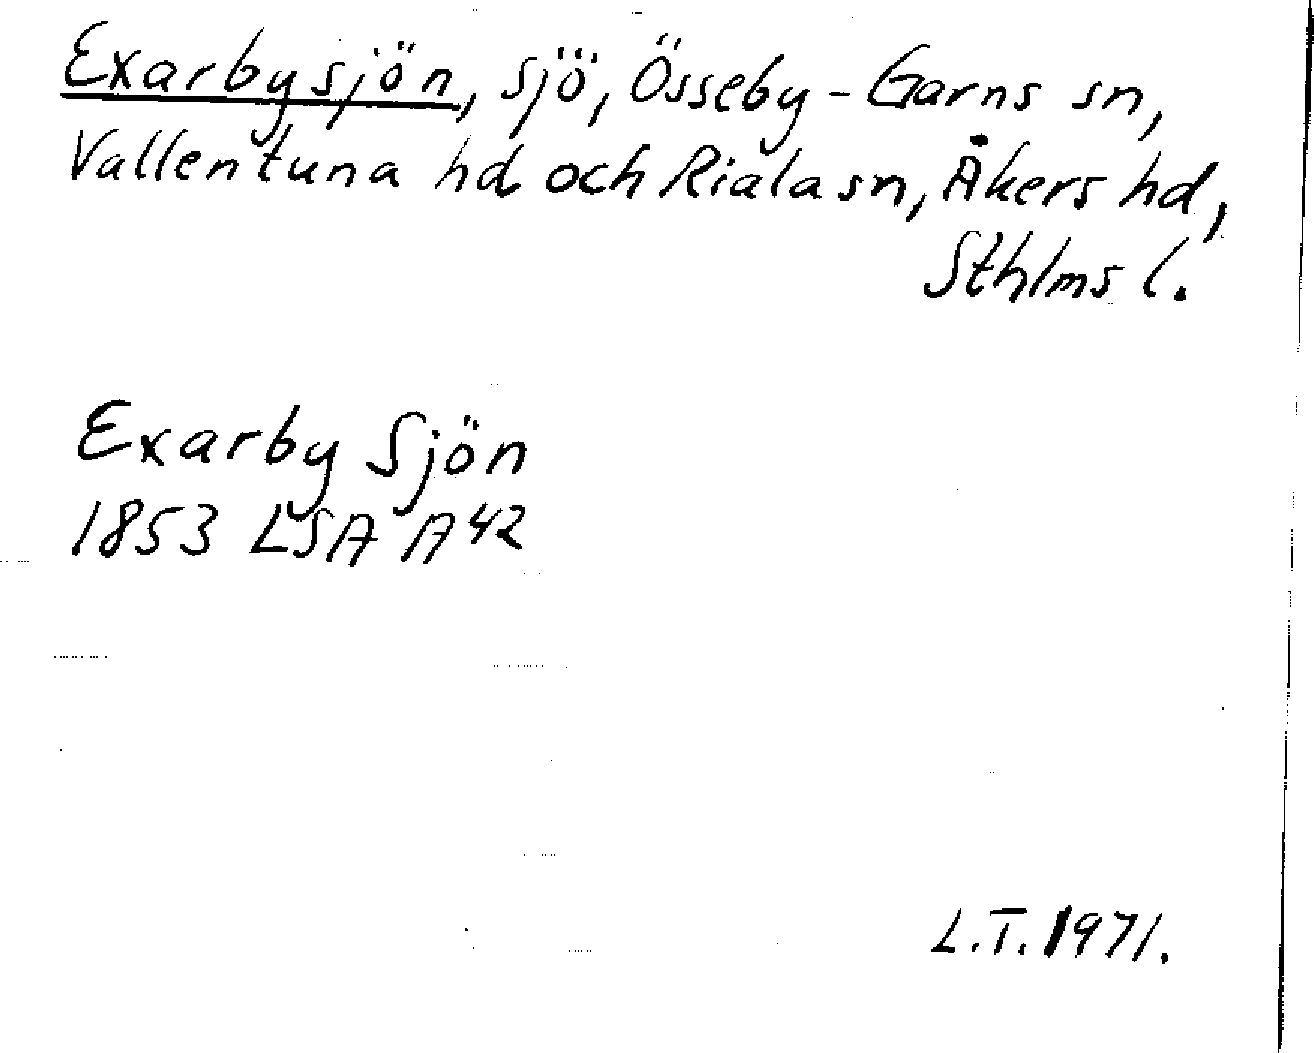 Exarbysjön, sjö, Össeby-Garns sn,
Vallentuna hd och Riala sn, Åkers hd,
Sthlms l.
Exarby Sjön
1853 LSA A42
L.T. 1971.